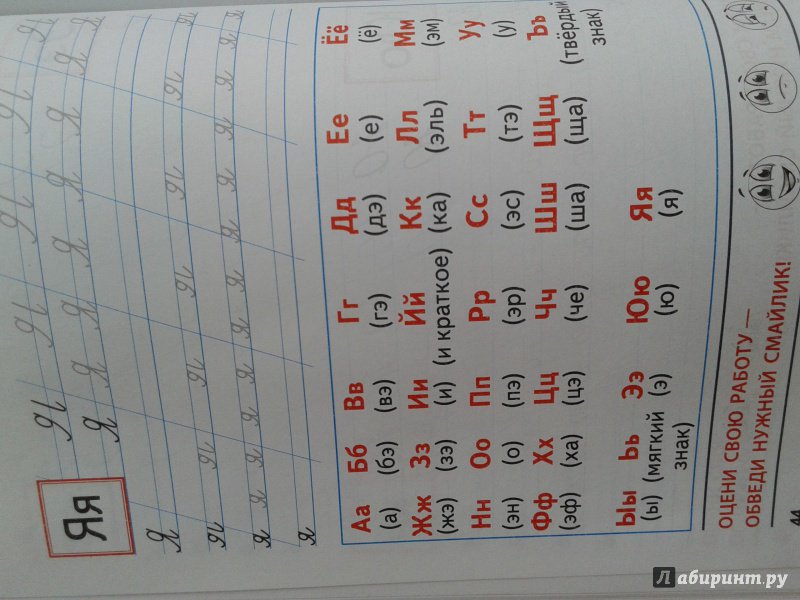 Яя
Я Я Я Я Я Я
Я Я Я Я Я Я Я
Я Я Я Я Я Я
я я я я я я я я я
я
Аа Бб Вв Гг Дд Ее Ёё
(а) (бэ) (вэ) (гэ) (дэ) (е) (ё)
Жж Зз Ии Йй Кк Лл Мм
(жэ) (зэ) (и) (и краткое) (ка) (эль) (эм)
Нн Оо Пп Рр Сс Тт Уу
(эн) (о) (пэ) (эр) (эс) (тэ) (у)
Фф Хх Цц Чч Шш Щщ Ъъ
(эф) (ха) (цэ) (че) (ша) (ща) (твёрдый
знак)
Ыы Ьь Ээ Юю Яя
(ы) (мягкий (э) (ю) (я)
знак)
ОЦЕНИ СВОЮ РАБОТУ —
ОБВЕДИ НУЖНЫЙ СМАЙЛИК!
44
Лабиринт.ру